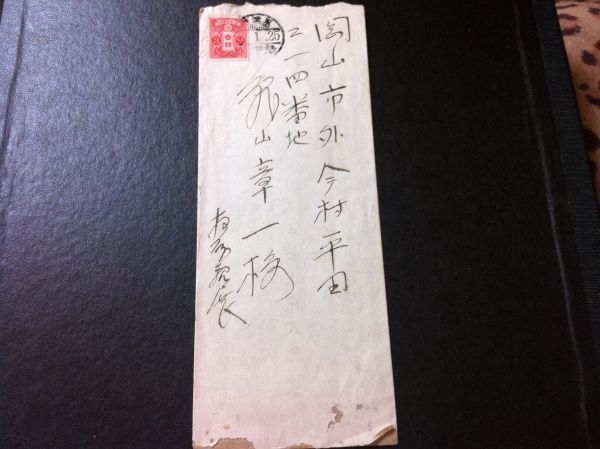 岡山市外今村平田
二一四番地
亀山章一様
1.25